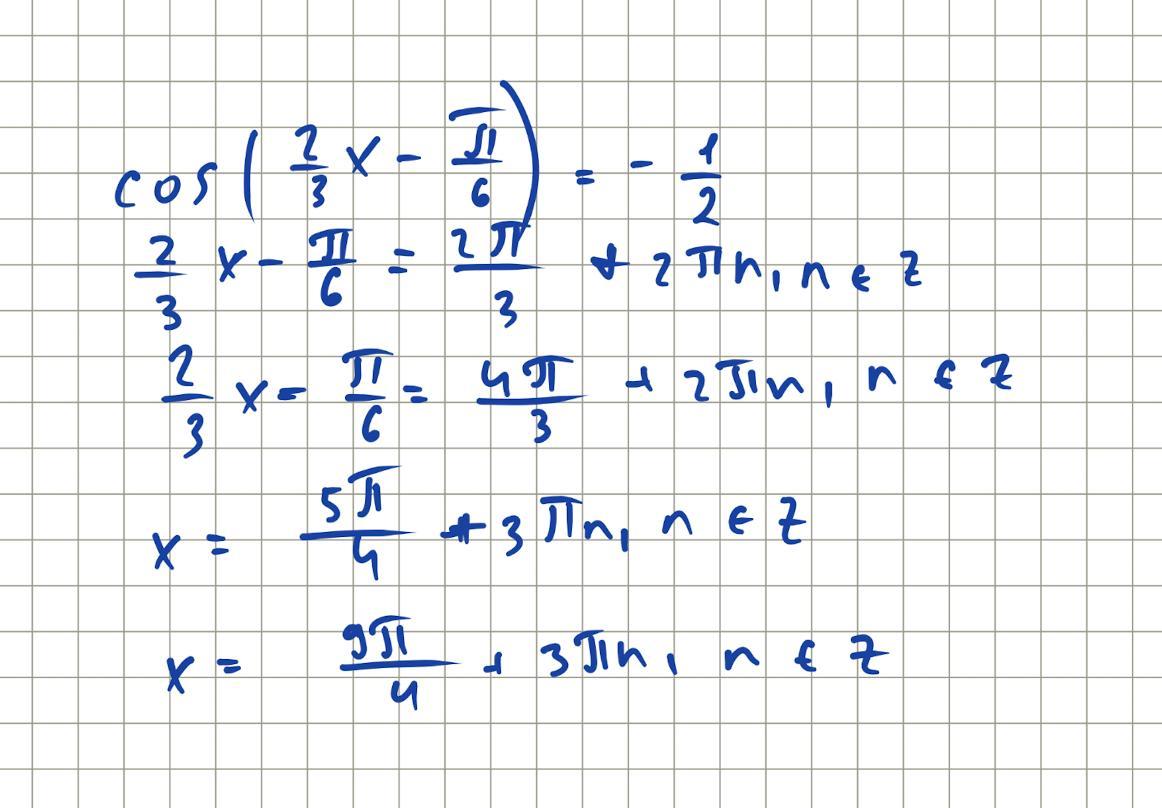 cos(2/3 x - π/6) = - 1/2
2/3 x - π/6 = 2π/3 + 2πn, n ∈ Z
2/3 x - π/6 = 4π/3 + 2πn, n ∈ Z
x = 5π/4 + 3πn, n ∈ Z
x = 9π/4 + 3πn, n ∈ Z